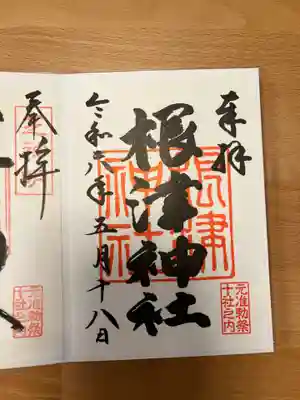 奉拝
根津神社
根津
神社
元准勅祭
十社之内
令和六年五月十八日
奉拝
元准勅祭
十社之内